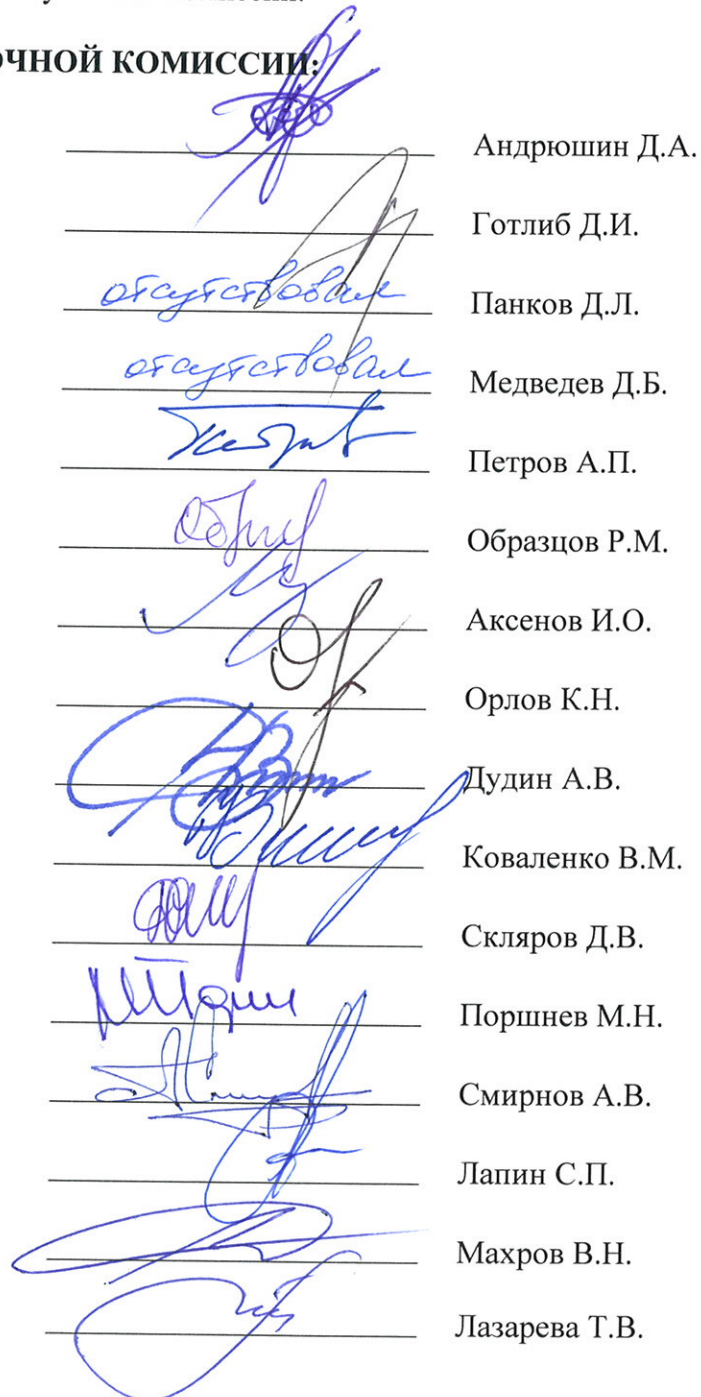 ОЧНОЙ КОМИССИИ:
Андрюшин Д.А.
Готлиб Д.И.
отсутствовал Панков Д.Л.
отсутствовал Медведев Д.Б.
Петров А.П.
Образцов Р.М.
Аксенов И.О.
Орлов К.Н.
Дудин А.В.
Коваленко В.М.
Скляров Д.В.
Поршнев М.Н.
Смирнов А.В.
Лапин С.П.
Махров В.Н.
Лазарева Т.В.